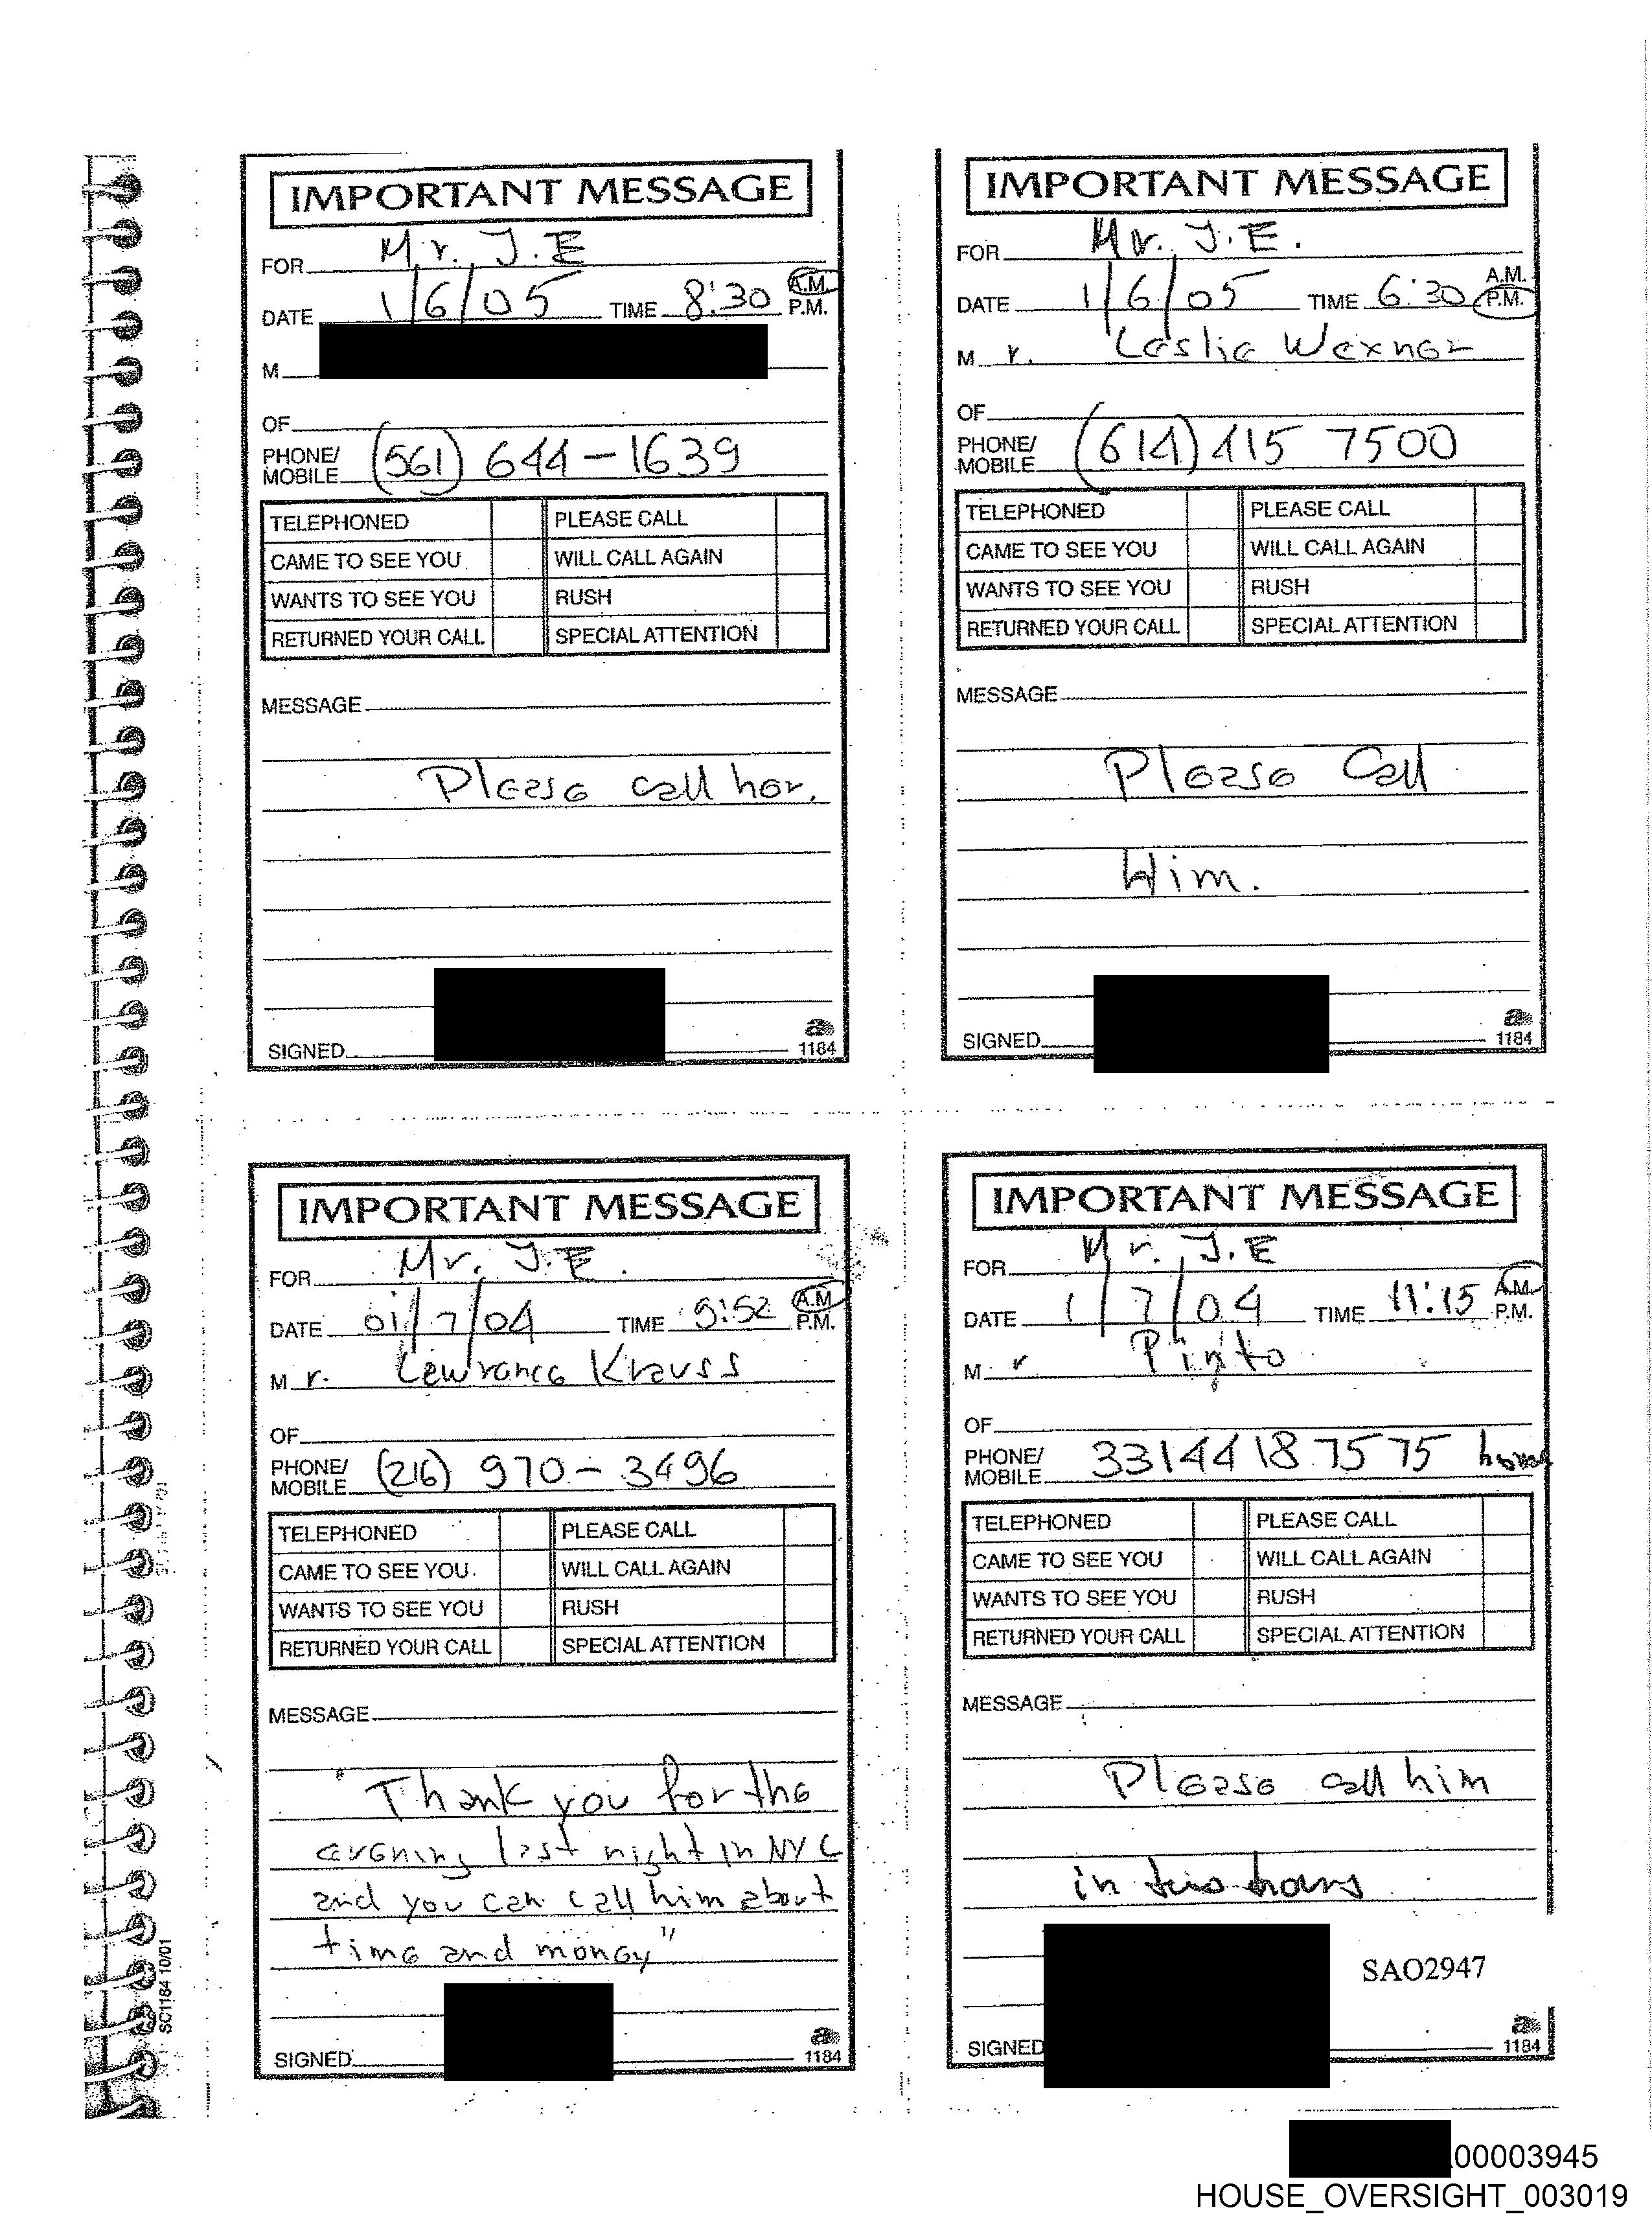 IMPORTANT MESSAGE
FOR Mr. J.E
DATE 1/6/05 TIME 8:30 A.M. P.M.
M
OF
PHONE/ MOBILE (561) 644-1639
TELEPHONED PLEASE CALL
CAME TO SEE YOU WILL CALL AGAIN
WANTS TO SEE YOU RUSH
RETURNED YOUR CALL SPECIAL ATTENTION
MESSAGE
Please call her.
SIGNED
a
1184
IMPORTANT MESSAGE
FOR Mr. J.E.
DATE 1/6/05 TIME 6:30 A.M. P.M.
M r. Leslie Wexner
OF
PHONE/ MOBILE (614) 415 7500
TELEPHONED PLEASE CALL
CAME TO SEE YOU WILL CALL AGAIN
WANTS TO SEE YOU RUSH
RETURNED YOUR CALL SPECIAL ATTENTION
MESSAGE
Please Call
Him.
SIGNED
a
1184
IMPORTANT MESSAGE
FOR Mr. J.E.
DATE 01/7/04 TIME 9:52 A.M. P.M.
M r. Lewrance Krauss
OF
PHONE/ MOBILE (216) 970-3496
TELEPHONED PLEASE CALL
CAME TO SEE YOU. WILL CALL AGAIN
WANTS TO SEE YOU RUSH
RETURNED YOUR CALL SPECIAL ATTENTION
MESSAGE
"Thank you for the
evening last night in NYC
and you can call him about
time and money"
SIGNED
a
1184
IMPORTANT MESSAGE
FOR Mr. J.E
DATE 1/7/04 TIME 11:15 A.M. P.M.
M r Pinto
OF
PHONE/ MOBILE 33144187575 home
TELEPHONED PLEASE CALL
CAME TO SEE YOU WILL CALL AGAIN
WANTS TO SEE YOU RUSH
RETURNED YOUR CALL SPECIAL ATTENTION
MESSAGE
Please call him
in two hours
SAO2947
SIGNED
a
1184
SC1184 10/01
00003945
HOUSE_OVERSIGHT_003019